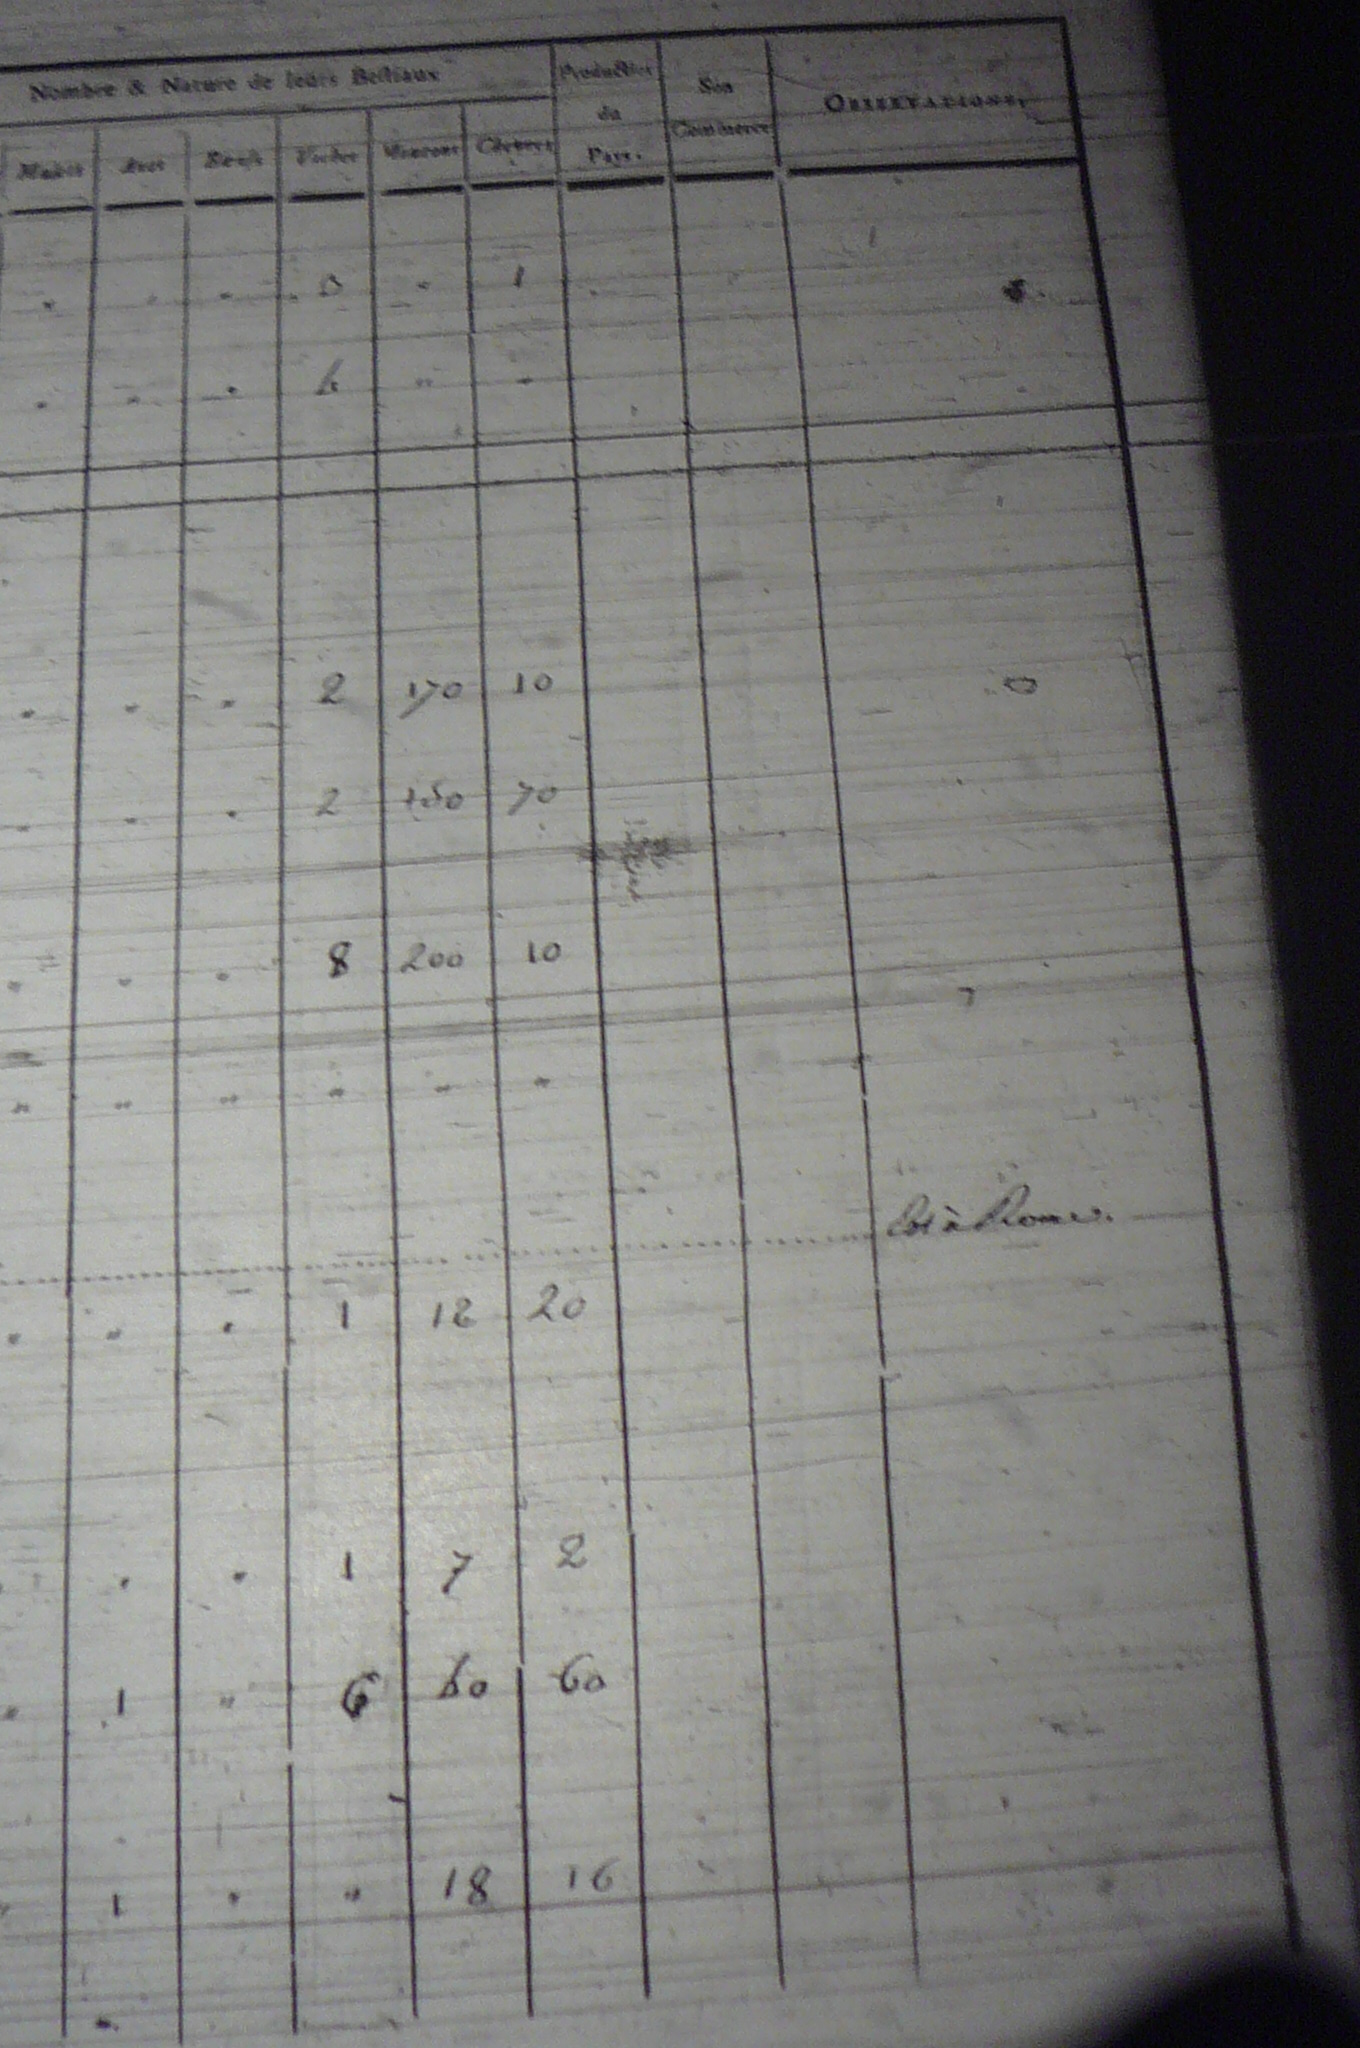 Nombre & Nature de leurs Bestiaux
Production du Pays.
Son Commerce
OBSERVATIONS.
Mulets Anes Bœufs Vaches Moutons Chevres
" " " 3 " 1
" " " 6 " "
" " " 2 170 10
" " " 2 150 70
" " " 8 200 10
" " " " " "
est à Rome.
" " " 1 12 20
" " " 1 7 2
" 1 " 6 60 60
" 1 " " 18 16